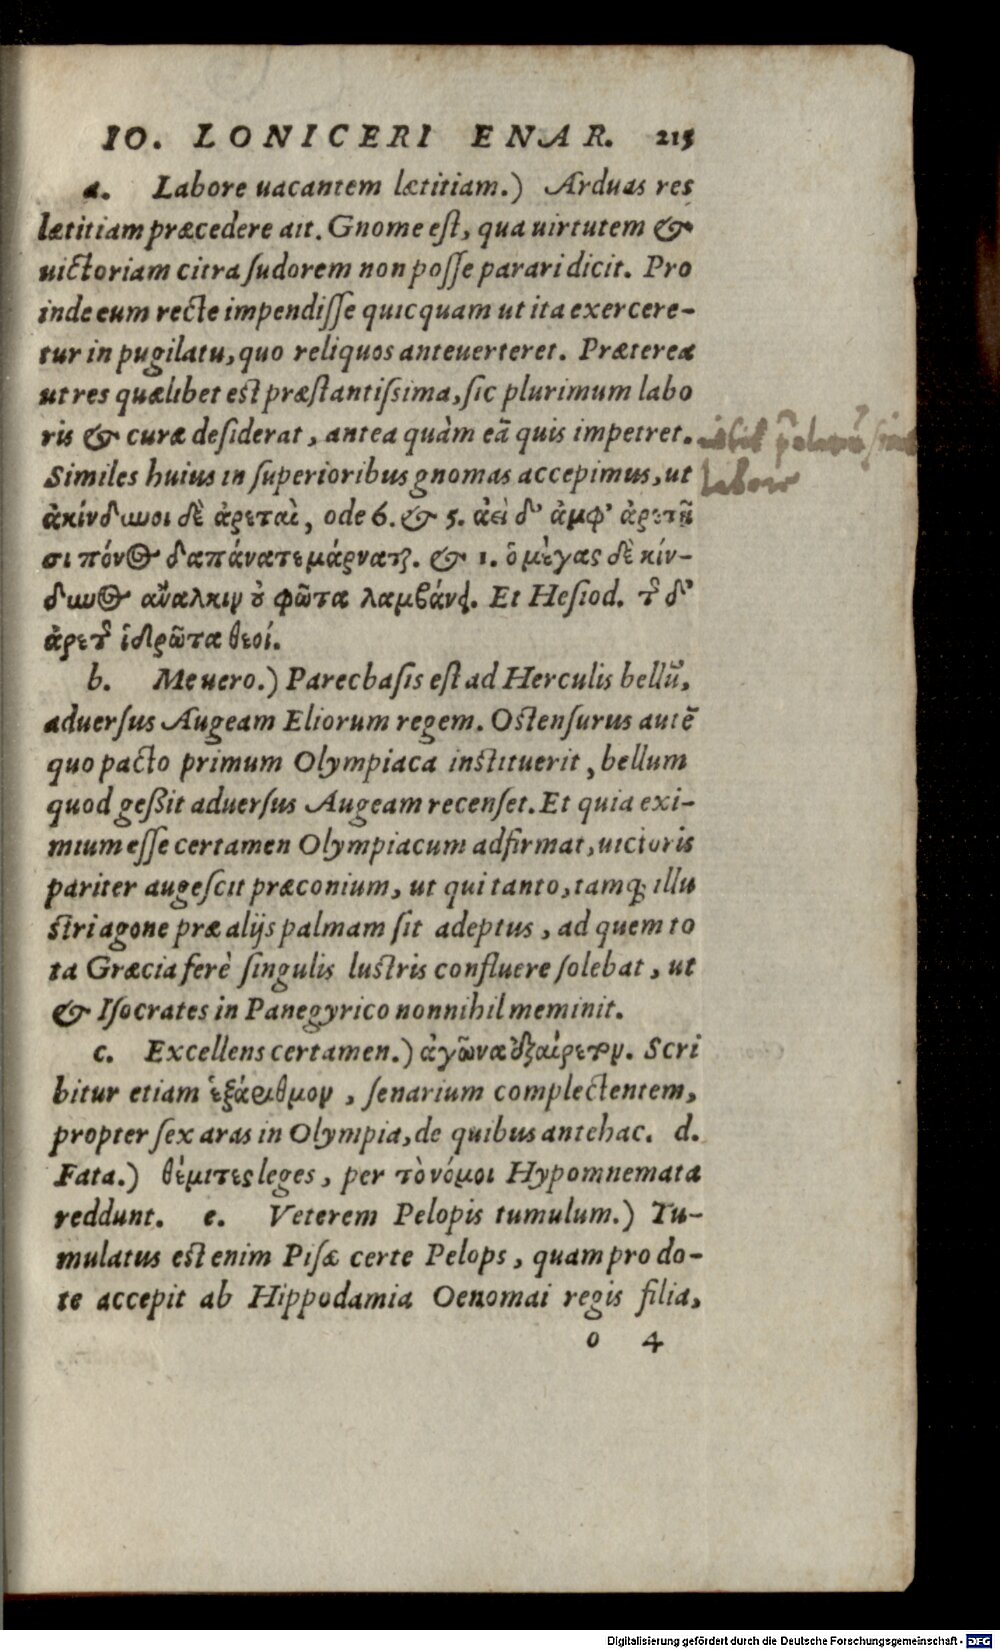 IO. LONICERI ENAR. 215
a. Labore uacantem lætitiam.) Arduas res
lætitiam præcedere ait. Gnome est, qua uirtutem &
uictoriam citra sudorem non posse parari dicit. Pro
inde eum recte impendisse quicquam ut ita exercere-
tur in pugilatu, quo reliquos anteuerteret. Præterea
ut res quælibet est præstantissima, sic plurimum labo
ris & curæ desiderat, antea quàm eã quis impetret.
Similes huius in superioribus gnomas accepimus, ut
ἀκίνδυνοι δὲ ἀρεταὶ, ode 6. & 5. ἀεὶ δ' ἀμφ' ἀρετῇ
σι πόνος δαπάνα τε μάρναται. & 1. ὁ μέγας δὲ κίν-
δυνος ἄναλκιν οὐ φῶτα λαμβάνει. Et Hesiod. τῆς δ'
ἀρετῆς ἱδρῶτα θεοί.
b. Me uero.) Parecbasis est ad Herculis bellũ,
aduersus Augeam Eliorum regem. Ostensurus autẽ
quo pacto primum Olympiaca instituerit, bellum
quod geßit aduersus Augeam recenset. Et quia exi-
mium esse certamen Olympiacum adfirmat, uictoris
pariter augescit præconium, ut qui tanto, tamq; illu
stri agone præ alijs palmam sit adeptus, ad quem to
ta Græcia ferè singulis lustris confluere solebat, ut
& Isocrates in Panegyrico nonnihil meminit.
c. Excellens certamen.) ἀγῶνα ἐξαίρετον. Scri
bitur etiam ἑξάριθμον, senarium complectentem,
propter sex aras in Olympia, de quibus antehac. d.
Fata.) θέμιτες leges, per τὸ νόμοι Hypomnemata
reddunt. e. Veterem Pelopis tumulum.) Tu-
mulatus est enim Pisæ certe Pelops, quam pro do-
te accepit ab Hippodamia Oenomai regis filia,
o 4
labore
Digitalisierung gefördert durch die Deutsche Forschungsgemeinschaft - DFG